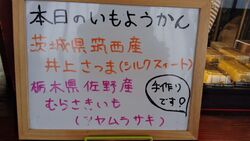 本日のいもようかん
茨城県筑西産
井上さつま(シルクスイート)
栃木県佐野産
むらさきいも
(アヤムラサキ)
手作りです!